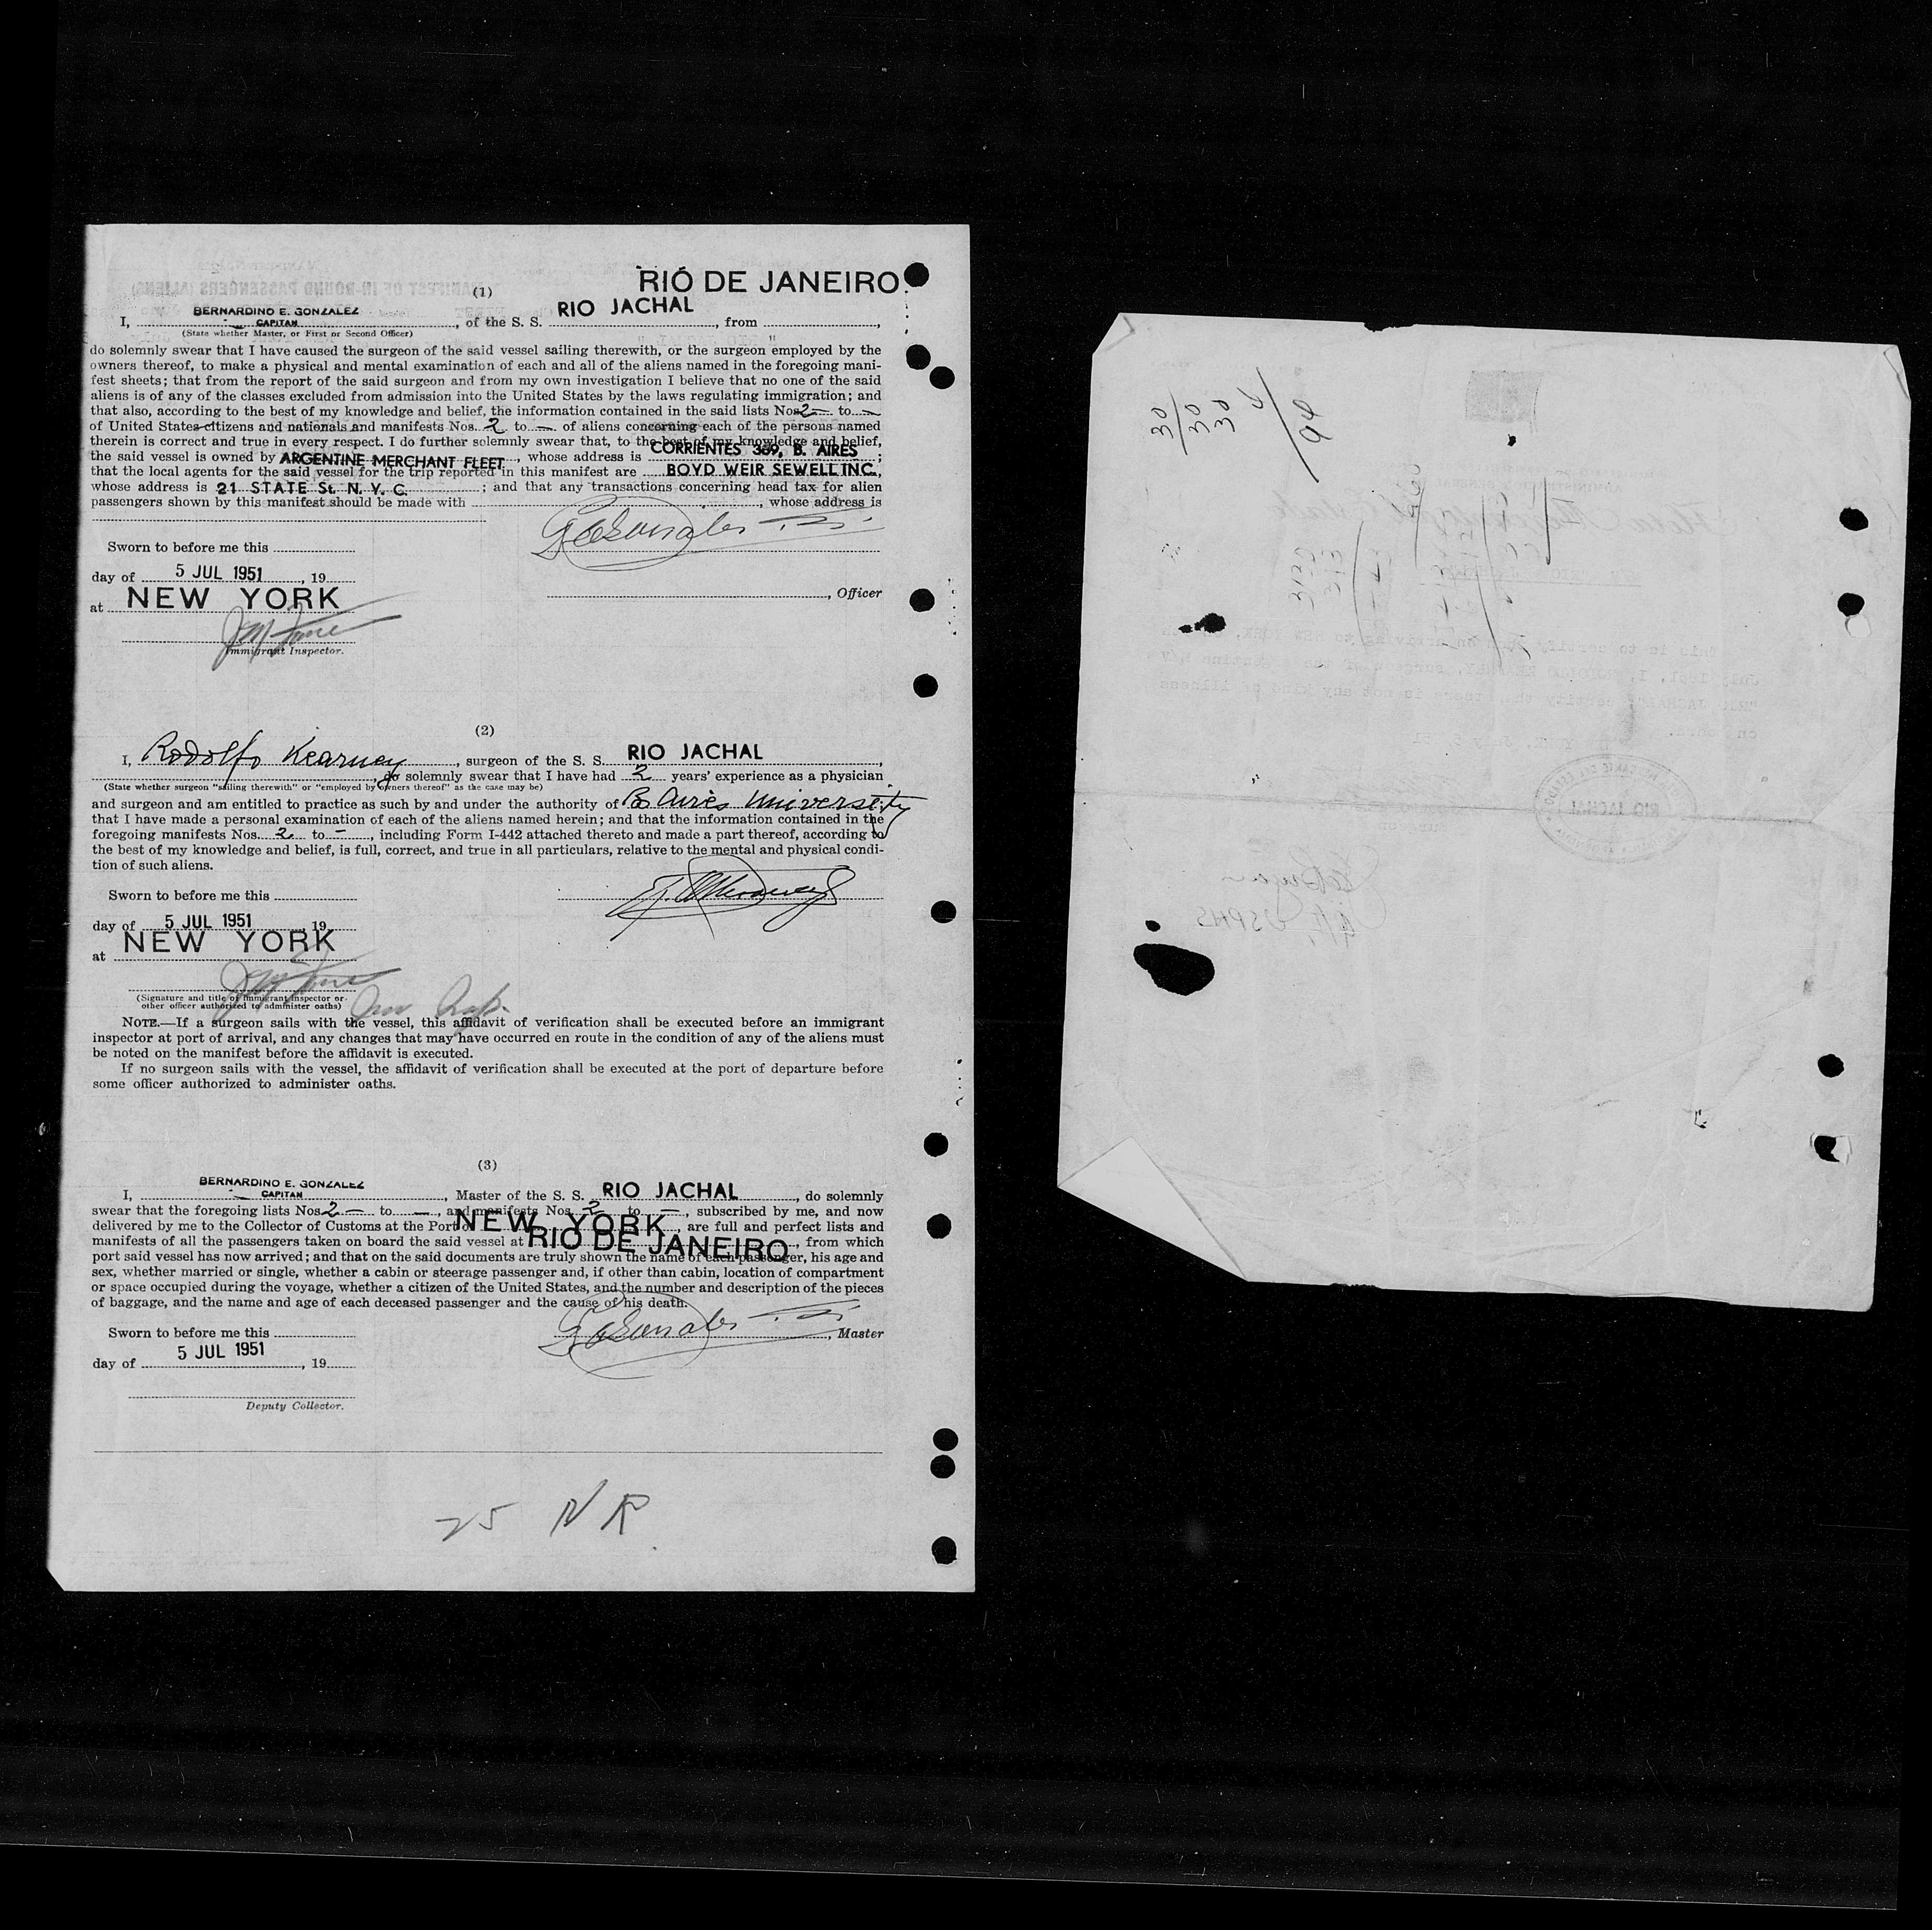 RIO DE JANEIRO
(1)
I, BERNARDINO E. GONZALEZ CAPITAN, of the S. S. RIO JACHAL, from
(State whether Master, or First or Second Officer)
do solemnly swear that I have caused the surgeon of the said vessel sailing therewith, or the surgeon employed by the
owners thereof, to make a physical and mental examination of each and all of the aliens named in the foregoing mani-
fest sheets; that from the report of the said surgeon and from my own investigation I believe that no one of the said
aliens is of any of the classes excluded from admission into the United States by the laws regulating immigration; and
that also, according to the best of my knowledge and belief, the information contained in the said lists Nos. 2 — to —
of United States citizens and nationals and manifests Nos. 2 to — of aliens concerning each of the persons named
therein is correct and true in every respect. I do further solemnly swear that, to the best of my knowledge and belief,
the said vessel is owned by ARGENTINE MERCHANT FLEET, whose address is CORRIENTES 389, B. AIRES;
that the local agents for the said vessel for the trip reported in this manifest are BOYD WEIR SEWELL INC.,
whose address is 21 STATE St. N. Y. C.; and that any transactions concerning head tax for alien
passengers shown by this manifest should be made with , whose address is
Sworn to before me this
day of 5 JUL 1951, 19
, Officer
at NEW YORK
Immigrant Inspector.
(2)
I, Rodolfo Kearney, surgeon of the S. S. RIO JACHAL,
, do solemnly swear that I have had 2 years' experience as a physician
(State whether surgeon "sailing therewith" or "employed by owners thereof" as the case may be)
and surgeon and am entitled to practice as such by and under the authority of Bs Aires University
that I have made a personal examination of each of the aliens named herein; and that the information contained in the
foregoing manifests Nos. 2 to -, including Form I-442 attached thereto and made a part thereof, according to
the best of my knowledge and belief, is full, correct, and true in all particulars, relative to the mental and physical condi-
tion of such aliens.
Sworn to before me this
day of 5 JUL 1951, 19
at NEW YORK
(Signature and title of immigrant inspector or
other officer authorized to administer oaths)
NOTE.—If a surgeon sails with the vessel, this affidavit of verification shall be executed before an immigrant
inspector at port of arrival, and any changes that may have occurred en route in the condition of any of the aliens must
be noted on the manifest before the affidavit is executed.
If no surgeon sails with the vessel, the affidavit of verification shall be executed at the port of departure before
some officer authorized to administer oaths.
(3)
I, BERNARDINO E. GONZALEZ CAPITAN, Master of the S. S. RIO JACHAL, do solemnly
swear that the foregoing lists Nos. 2 — to —, and manifests Nos. 2 to —, subscribed by me, and now
delivered by me to the Collector of Customs at the Port of NEW YORK, are full and perfect lists and
manifests of all the passengers taken on board the said vessel at RIO DE JANEIRO, from which
port said vessel has now arrived; and that on the said documents are truly shown the name of each passenger, his age and
sex, whether married or single, whether a cabin or steerage passenger and, if other than cabin, location of compartment
or space occupied during the voyage, whether a citizen of the United States, and the number and description of the pieces
of baggage, and the name and age of each deceased passenger and the cause of his death.
Sworn to before me this
, Master
day of 5 JUL 1951, 19
Deputy Collector.
25 NR
30
30
30
90